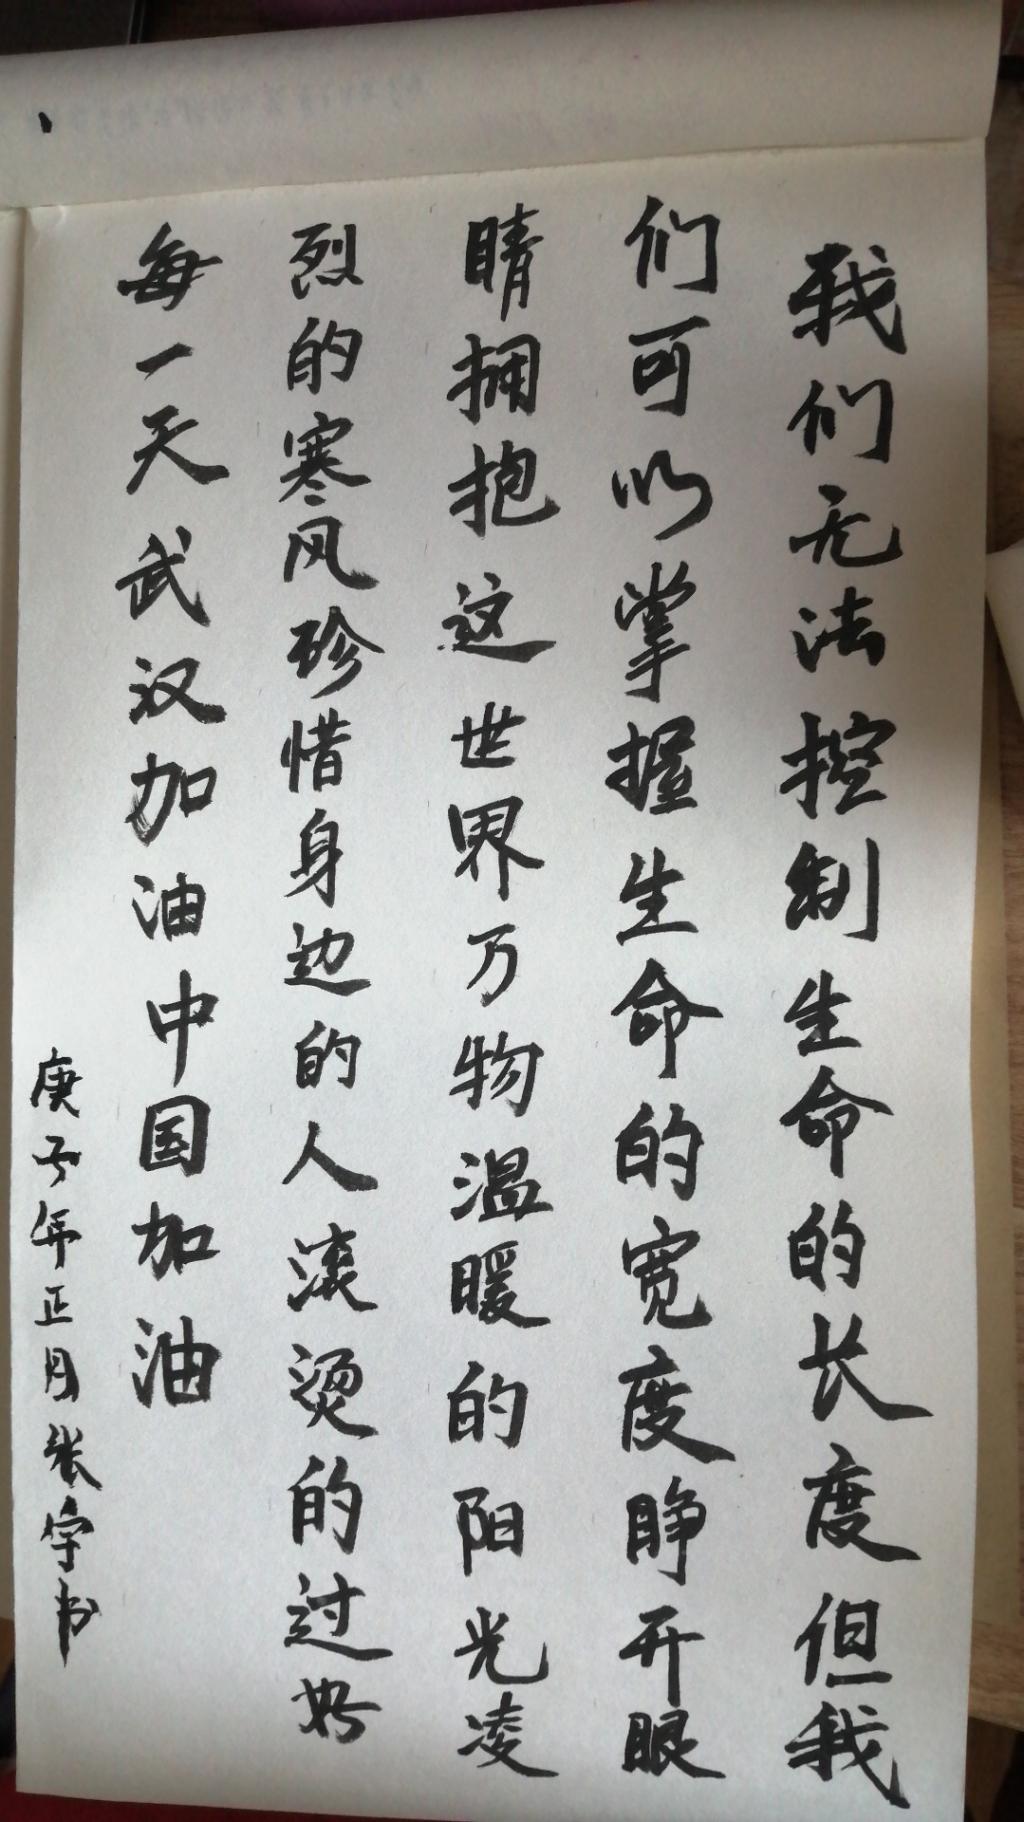 我们无法控制生命的长度但我
们可以掌握生命的宽度睁开眼
睛拥抱这世界万物温暖的阳光凌
烈的寒风珍惜身边的人滚烫的过好
每一天武汉加油中国加油
庚子年正月张宇书